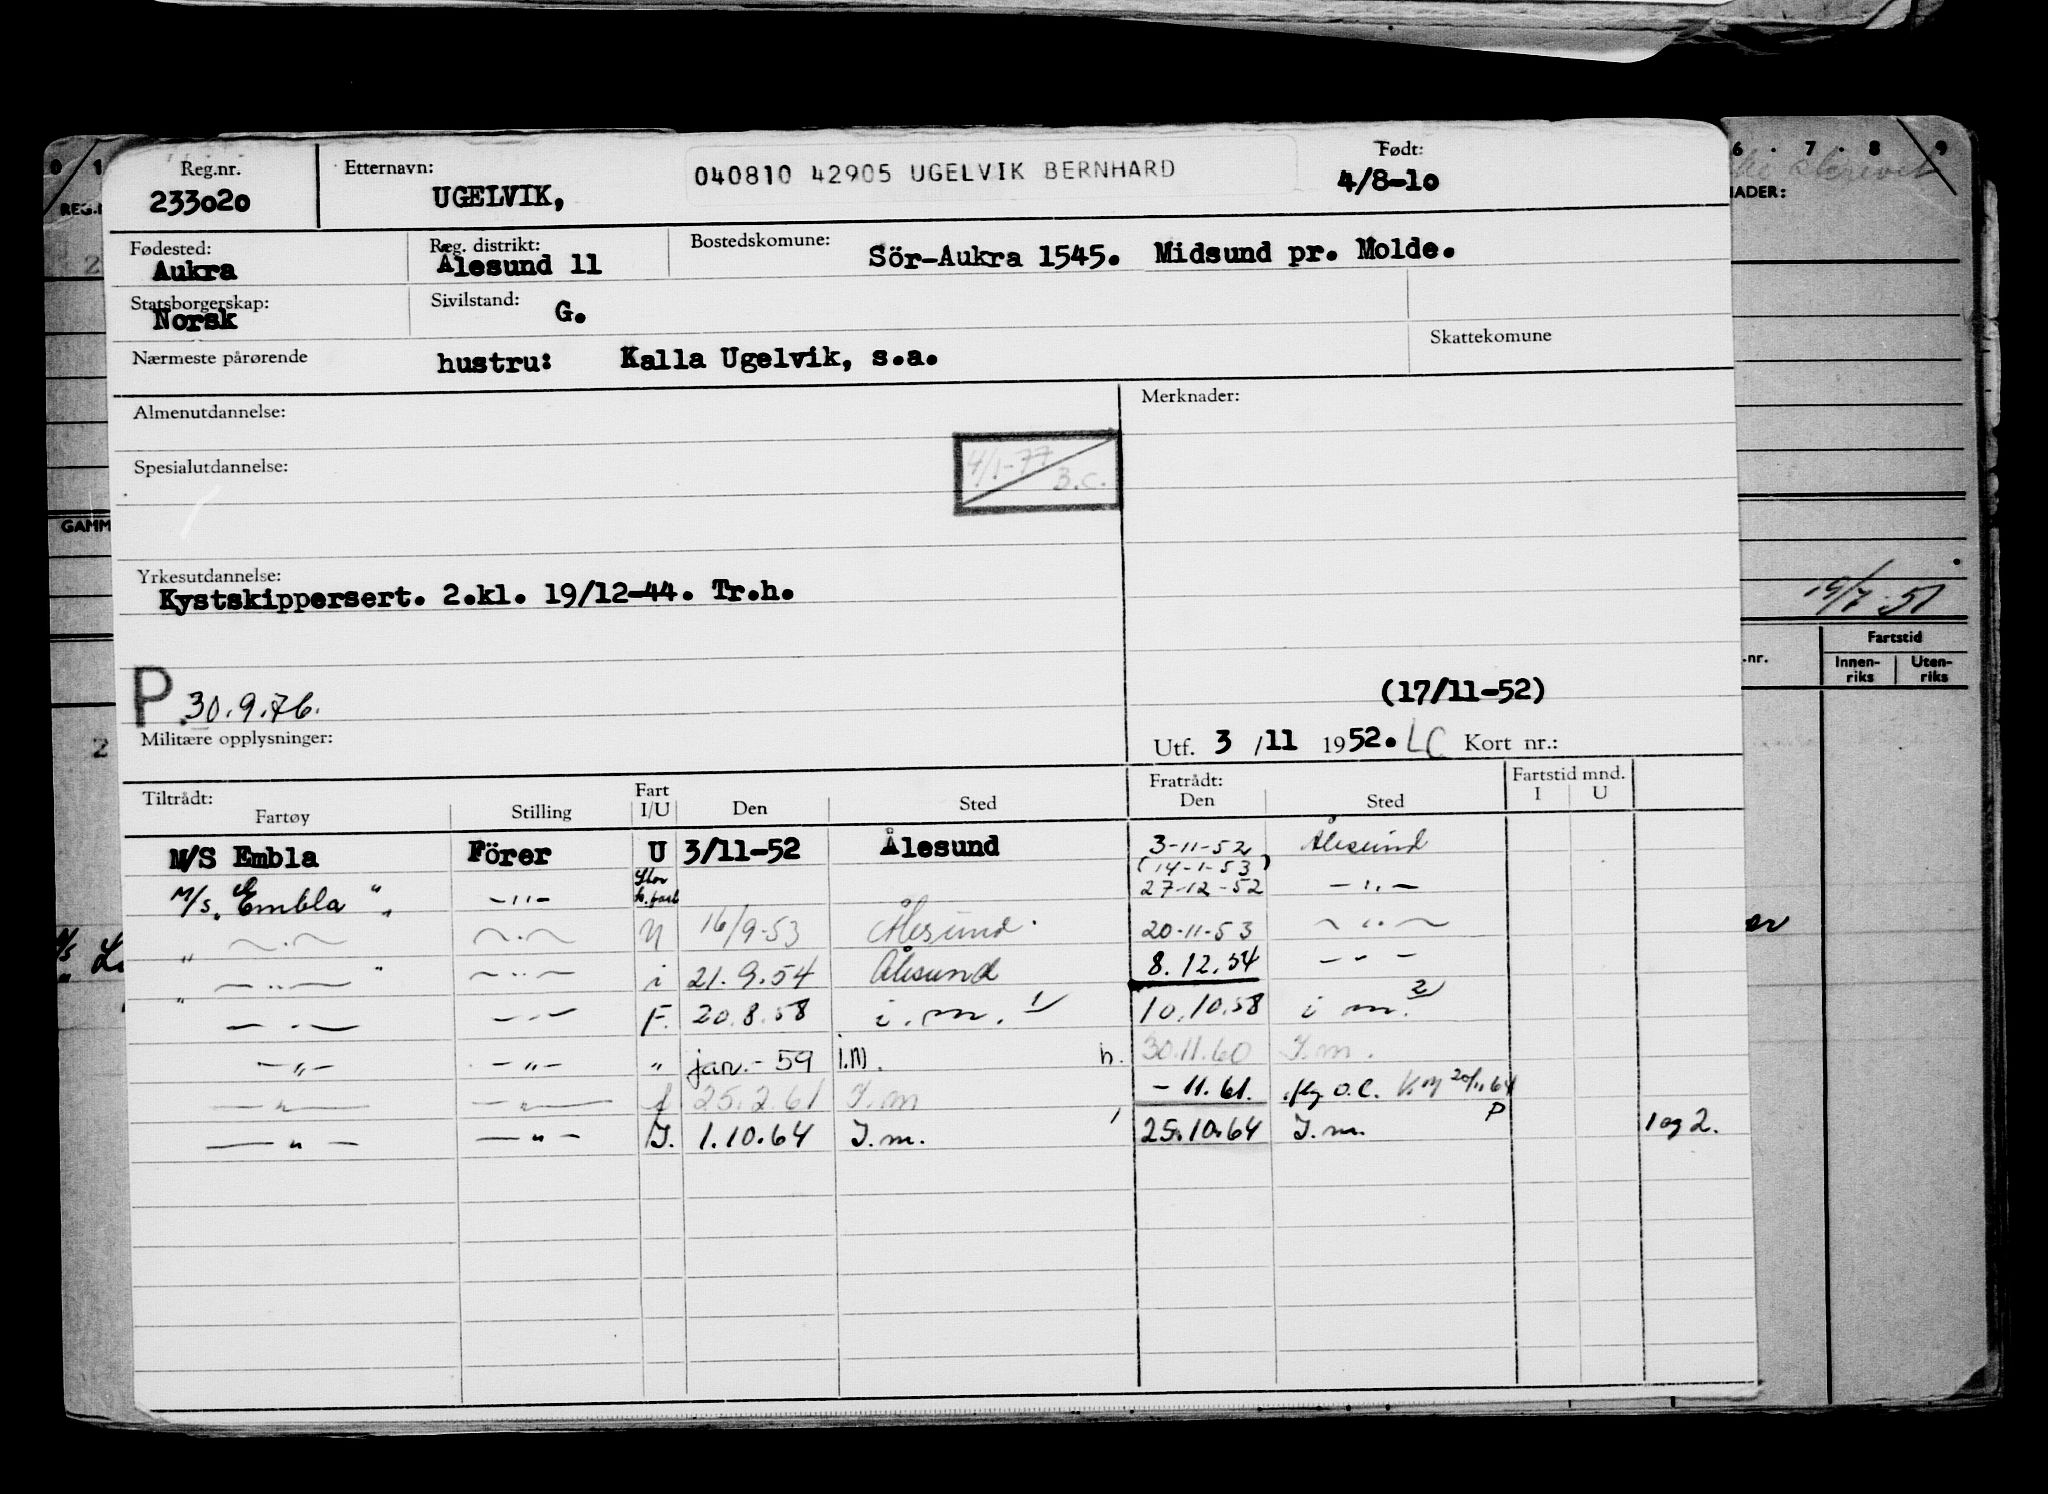 Reg.nr. Etternavn: 040810 42905 UGELVIK BERNHARD Født:
233020 UGELVIK, 4/8-10
Fødested: Reg. distrikt: Bostedskomune:
Aukra Ålesund 11 Sör-Aukra 1545. Midsund pr. Molde.
Statsborgerskap: Sivilstand:
Norsk G.
Skattekomune
Nærmeste pårørende hustru: Kalla Ugelvik, s.a.
Almenutdannelse: Merknader:
4/1-77 B.C.
Spesialutdannelse:
Yrkesutdannelse:
Kystskippersert. 2.kl. 19/12-44. Tr.h.
P. 30.9.76.
(17/11-52)
Militære opplysninger: Utf. 3 /11 1952. LC Kort nr.:
Tiltrådt: Fart Fratrådt: Fartstid mnd.
Fartøy Stilling I/U Den Sted Den Sted I U
M/S Embla Förer U 3/11-52 Ålesund 3-11-52 Ålesund
(14-1-53)
M/s „Embla" -"- 27-12-52 -"-
-"- -"- U 16/9-53 Ålesund. 20-11-53 -"-
" -"- " -"- i 21.9.54 Ålesund 8.12.54 - - -
" -"- -"- F. 20.8.58 i.m. 1/ 10.10.58 i m. 2/
-"- -"- " jan.- 59 i.m. h. 30.11.60 I.m.
-"- -"- f 25.2.61 I.m - 11.61. 20/11 64
-"- -"- I. 1.10.64 I.m. 25.10.64 I.m. P 1 og 2.
0 1 6 . 7 . 8 . 9
REG.N
NADER:
2
GAMM
19/7-51
Fartstid
.nr. Innen-riks Uten-riks
2